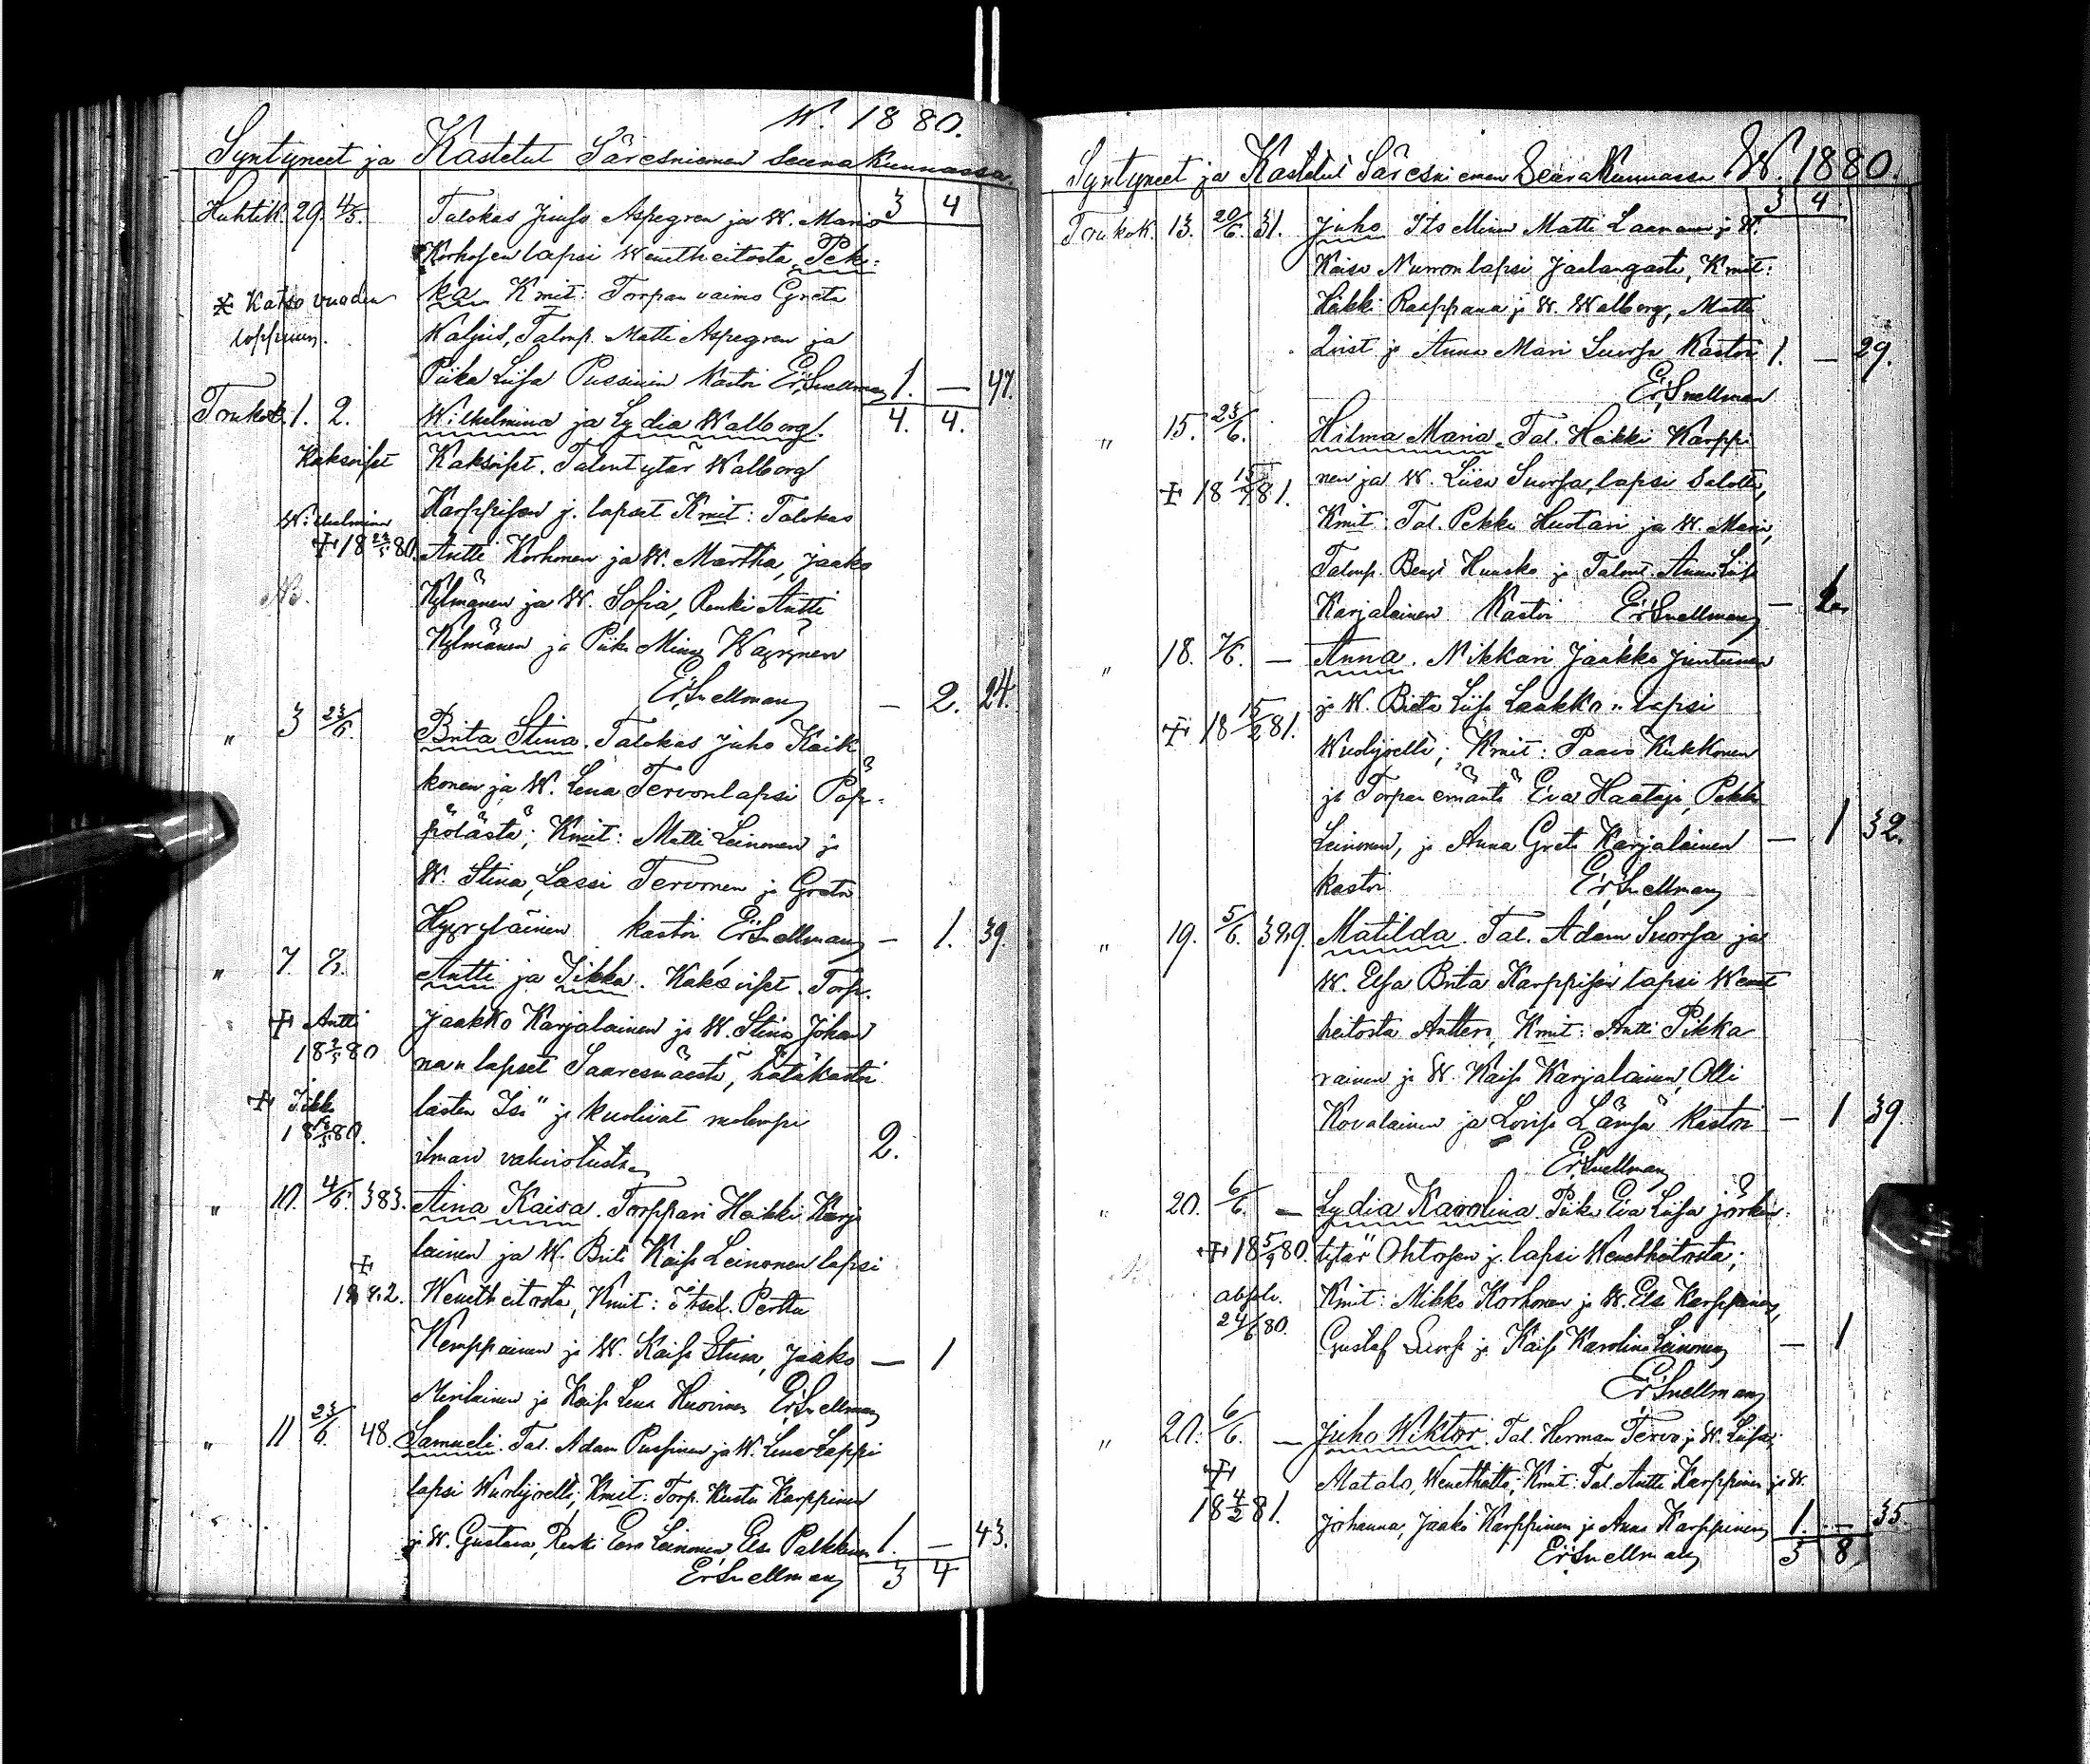 W. 1880.
Syntyneet ja Kastetut Säresniemen seurakunnassa.
3 4
Huhtik. 29. 4/5. Talokas Juuso Aspegren ja W. Maria
Korhosen lapsi Wenetheitosta Pek:
ka Kmit: Torpan vaimo Greta
Katso vuoden
loppuun.
Waljus, Talonp. Matti Aspegren ja
Piika Liisa Pussinen Kastoi E. Snellman 1. — 47.
Toukok. 1. 2. Wilhelmina ja Lydia Walborg. 4. 4.
Kaksoiset Kaksoiset. Talontytär Walborg
Karppisen j. lapset Kmit: Talokas
Wilhelmina
+ 18 80. Antti Korhonen ja W. Martha, Jaako
NB. Kylmänen ja W. Sofia, Renki Antti
Kylmänen ja Piika Mina Wäyrynen
E. Snellman — 2. 24.
" 3 23/5. Brita Stina. Talokas Juho Keik
konen ja W. Lena Tervon lapsi Pöp:
pölästä; Kmit: Matti Leinonen ja
W. Stina, Lassi Tervonen ja Greta
Hyyryläinen kastoi E. Snellman — 1. 39
" 7. 8. Antti ja Iikka. Kaksoiset. Torp.
+ Antti Jaakko Karjalainen ja W. Stina Johan
18 80 na" lapset Saaresmäestä, hätäkastoi
+ Iikka lasten Isä" ja kuolivat molempi
18 80. ilman vahvistusta 2.
" 10. 4/6. 383. Aina Kaisa. Torppari Heikki Karja
lainen ja W. Brita Kaisa Leinonen lapsi
+
1882. Wenetheitosta, Kmit: Itsel. Perttu
Kemppainen ja W. Kaisa Stina, Jaako — 1
Meriläinen ja Kaisa Lena Huovinen E. Snellman
" 11 23/6. 48. Samueli. Tal. Adam Pussinen ja W. Lena Lappi
lapsi Wuolijoelta; Kmit: Torp. Kusta Karppinen
ja W. Gustava, Renki Eero Leinonen Elsa Palkkinen 1. — 43.
E. Snellman 3 4
Syntyneet ja Kastetut Säresniemen Seurakunnassa W. 1880.
3 4
Toukok. 13. 20/6. 31. Juho Itsellinen Matti Laanan ja W.
Kaisa Nurron lapsi Jaalangasta, Kmit:
Heikki Raappana ja W. Walborg, Matti
Qvist ja Anna Mari Suorsa Kastoi 1. — 29.
E. Snellman
" 15. 23/6. Hilma Maria. Tal. Heikki Karppi
+ 18 81. nen ja W. Liisa Suorsa, lapsi
Kmit: Tal. Pekka Huotari ja W. Mari,
Talonp. Huusko ja Talont. Anna Liisa
Karjalainen Kastoi E. Snellman — 1.
" 18. 7/6. — Anna. Nikkari Jaakko Juntunen
ja W. Brita Liisa Laakko" lapsi
+ 18 15/2 81. Wuolijoelta; Kmit: Paavo Kukkonen
ja Torpan emäntä Eva Haataja, Pekka
Leinonen, ja Anna Greta Karjalainen — 1 32.
kastoi E. Snellman
" 19. 5/6. 329. Matilda. Tal. Adam Suorsa ja
W. Elsa Brita Karppisen lapsi Wenet
heitosta Kmit: Antti Pikka
rainen ja W. Kaisa Karjalainen, Olli
Kovalainen ja Lovisa Lämsä kastoi — 1 39.
E. Snellman
" 20. 6/6. — Lydia Karolina Piika Eva Liisa Jörkin
+ 18 5/9 80. tytär Ohtosen j. lapsi Wenetheitosta;
absolv. Kmit: Mikko Korhonen ja W. Elsa Karppinen,
24/6 80. Gustaf Suorsa ja Kaisa Karolina Leinonen — 1
E. Snellman
" 20. 6/6. — Juho Wiktor. Tal. Herman Tervo ja W. Liisa
+ Matalo, Wenetheitto, Kmit: Tal. Antti Karppinen ja W.
18 4/2 81. Johanna, Jaako Karppinen ja Anna Karppinen 1. — 35.
E. Snellman 5 8